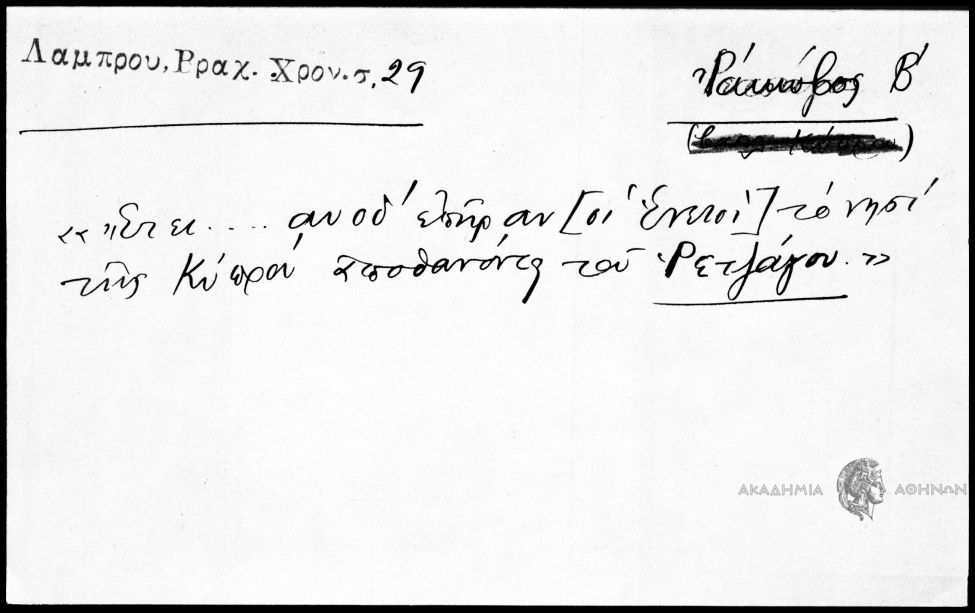 Λαμπρου, Βραχ. Χρον. σ. 29
Ῥάκκόβος Β'
«"Ετει .... αυοδ' ἐπῆραν [οἱ Ἐνετοὶ] τὸ νησὶ
τῆς Κύπρου ἀποθανόντος τοῦ Ῥετζάγου.»
ΑΚΑΔΗΜΙΑ ΑΘΗΝΩΝ